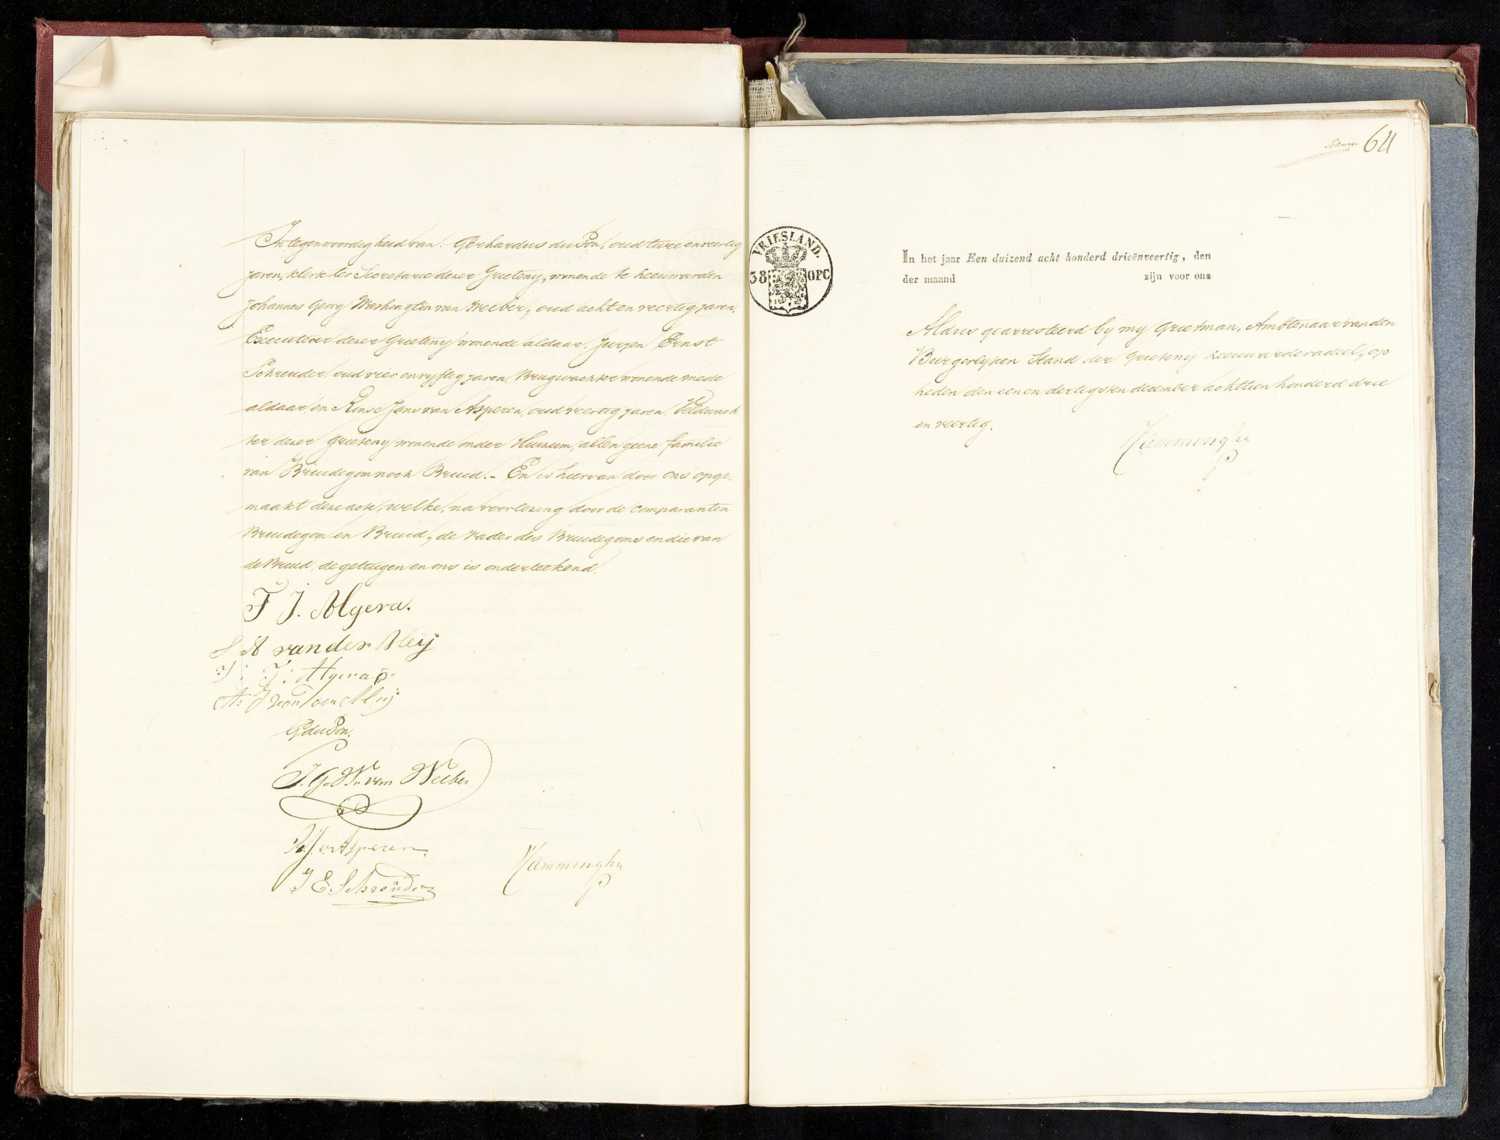 In tegenwoordigheid van: Gerhardus du Pon, oud twee en veertig
jaren, klerk ter Secretarie dezer Grieteny, wonende te Leeuwarden
Johannes Georg Washington van Weeber, oud acht en veertig jaren,
Executeur dezer Grieteny wonende aldaar, Jurjen Ernst
Schreuder, oud vier en vyftig jaren, Brugwachter wonende mede
aldaar en Rinse Jans van Asperen, oud veertig jaren, Veldwach
ter dezer Grieteny wonende onder Huizum, allen geene familie
van Bruidegom noch Bruid.- En is hiervan door ons opge-
maakt deze acte, welke, na voorlezing door de comparanten
Bruidegom en Bruid, de vader des Bruidegoms en die van
de Bruid, de getuigen en ons is onderteekend.
F J. Algera.
S A van der Meij
J: F: Algera
A J van der Meij
G du Pon.
J. G. W. van Weeber
R J v Asperen.
J E Schreuder
Hamminghe
64
VRIESLAND.
38 OPC
In het jaar Een duizend acht honderd drieënveertig, den
der maand zijn voor ons
Aldus gearresteerd by my Grietman, Ambtenaar van den
Burgerlyken Stand der Grieteny Leeuwarderadeel, op
heden den een en dertigsten december achttien honderd drie
en veertig.
Hamminghe